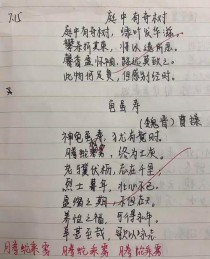 7.15
庭中有奇树
庭中有奇树，绿叶发华滋。
攀条折其荣，将以遗所思。
馨香盈怀袖，路远莫致之。
此物何足贵，但感别经时。
龟虽寿
(魏晋) 曹操
神龟虽寿，犹有竟时。
腾蛇乘雾，终为土灰。
老骥伏枥，志在千里。
烈士暮年，壮心不已。
盈缩之期，不但在天。
养怡之福，可得永年。
幸甚至哉，歌以咏志。
腾蛇乘雾 腾蛇乘雾 腾蛇乘雾